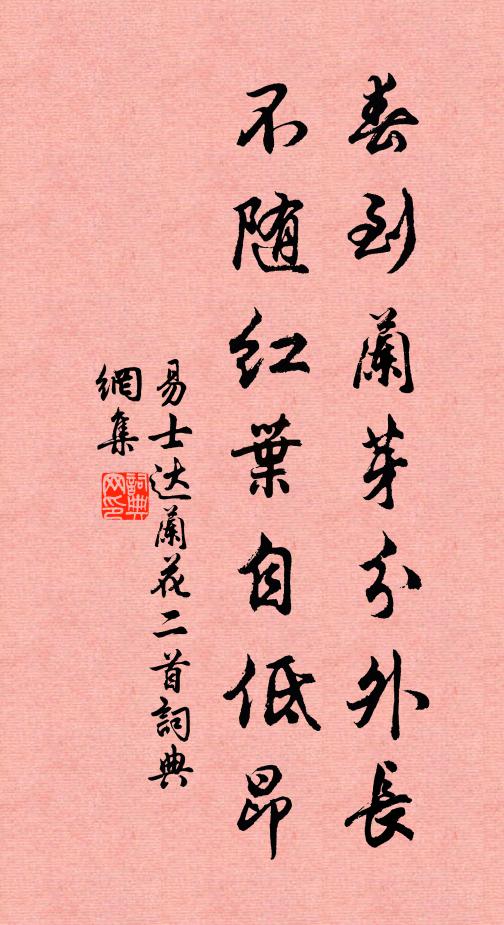 春到蘭芽分外長
不随紅葉自低昂
易士达蘭花二首詞典
網集
詞典
网印